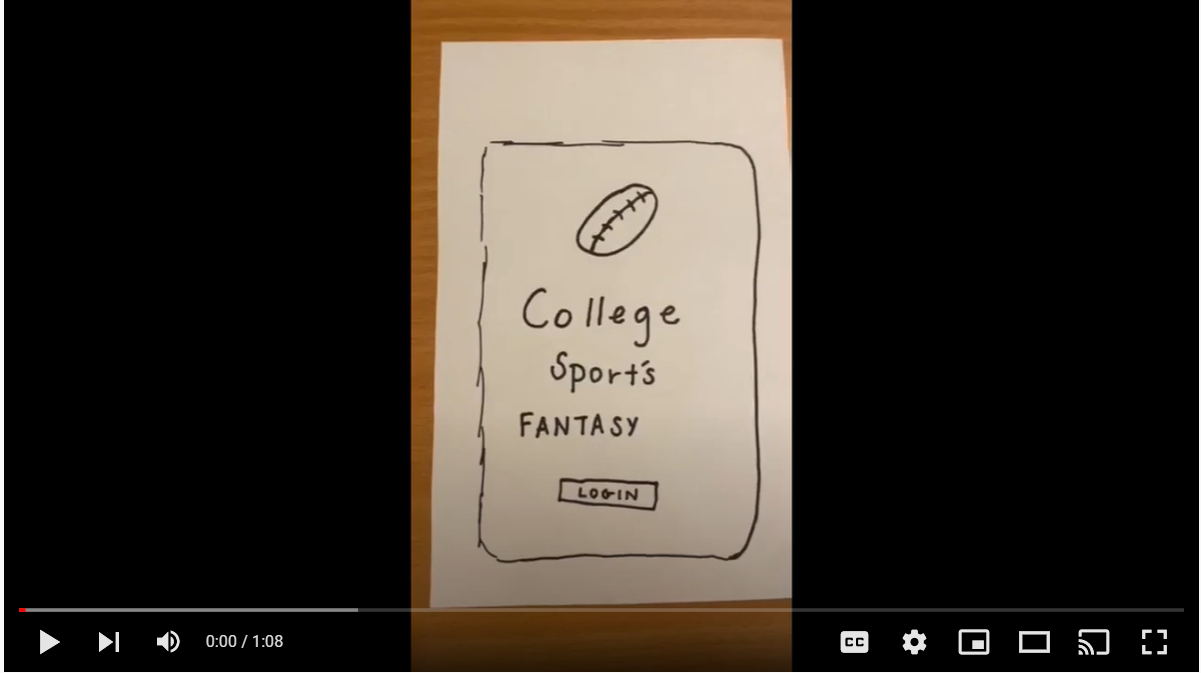 College
Sport's
FANTASY
LOGIN
0:00 / 1:08
CC